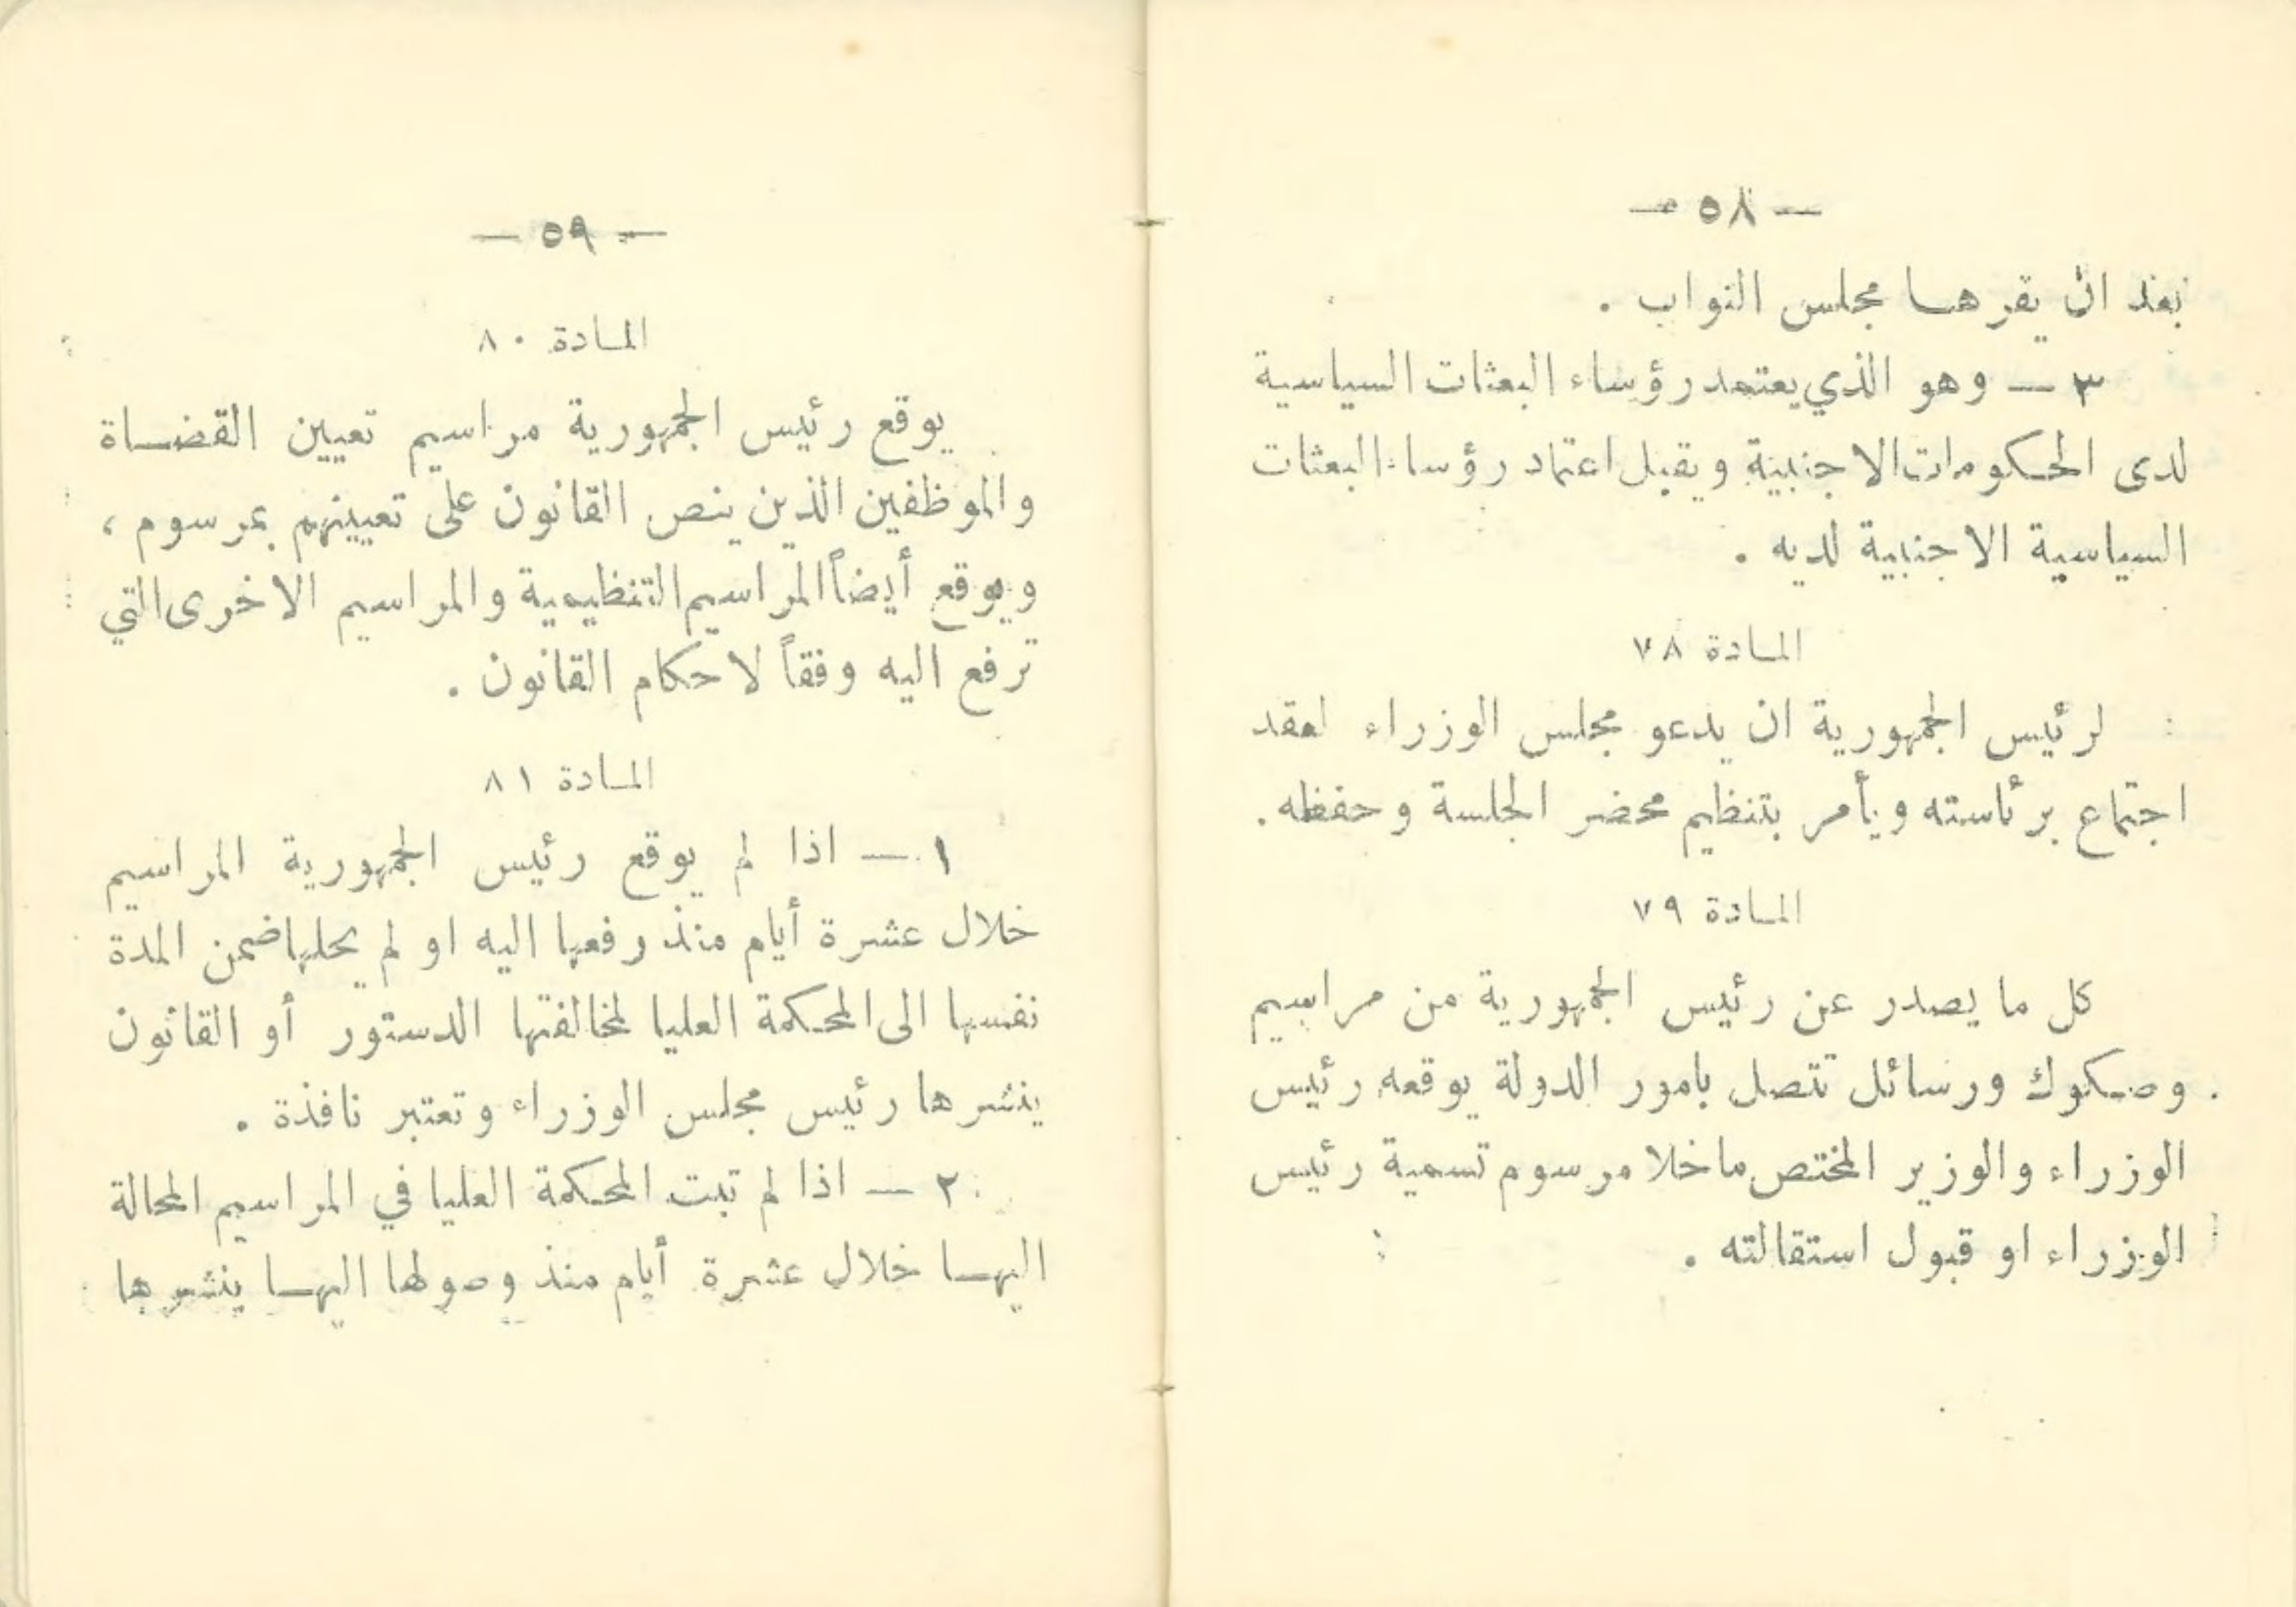 — ٥٨ —
بعد ان يقرهـا مجلس النواب .
٣ — وهو الذي يعتمد رؤساء البعثات السياسية
لدى الحكومات الاجنبية ويقبل اعتماد رؤساء البعثات
السياسية الاجنبية لديه .
المـادة ٧٨
لرئيس الجمهورية ان يدعو مجلس الوزراء لعقد
اجتماع برئاسته ويأمر بتنظيم محضر الجلسة وحفظه .
المـادة ٧٩
كل ما يصدر عن رئيس الجمهورية من مراسيم
وصكوك ورسائل تتصل بامور الدولة يوقعه رئيس
الوزراء والوزير المختص ماخلا مرسوم تسمية رئيس
الوزراء او قبول استقالته .
— ٥٩ —
المـادة ٨٠
يوقع رئيس الجمهورية مراسيم تعيين القضـاة
والموظفين الذين ينص القانون على تعيينهم بمرسوم ،
ويوقع أيضاً المراسيم التنظيمية والمراسيم الاخرى التي
ترفع اليه وفقاً لاحكام القانون .
المـادة ٨١
١ — اذا لم يوقع رئيس الجمهورية المراسيم
خلال عشرة أيام منذ رفعها اليه او لم يحلها ضمن المدة
نفسها الى المحكمة العليا لمخالفتها الدستور أو القانون
ينشرها رئيس مجلس الوزراء وتعتبر نافذة .
٢ — اذا لم تبت المحكمة العليا في المراسيم المحالة
اليهـا خلال عشرة أيام منذ وصولها اليهـا ينشرها